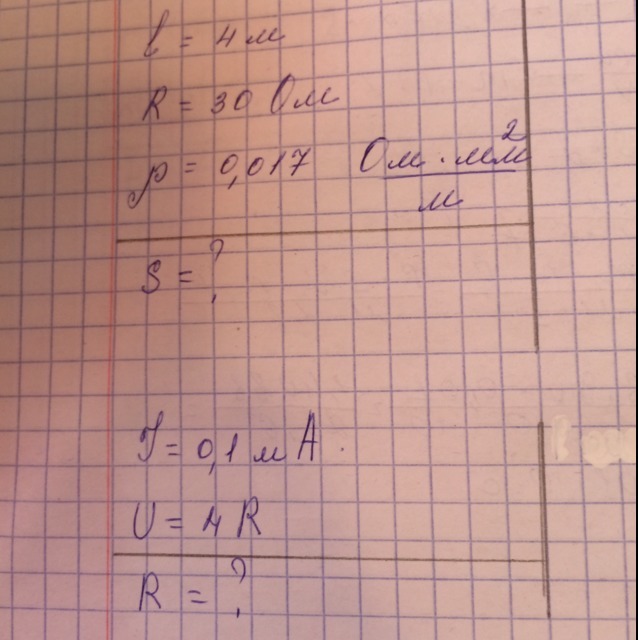 l = 4 м
R = 30 Ом
ρ = 0,017 Ом · мм²/м
S = ?
I = 0,1 мА
U = 4 R
R = ?